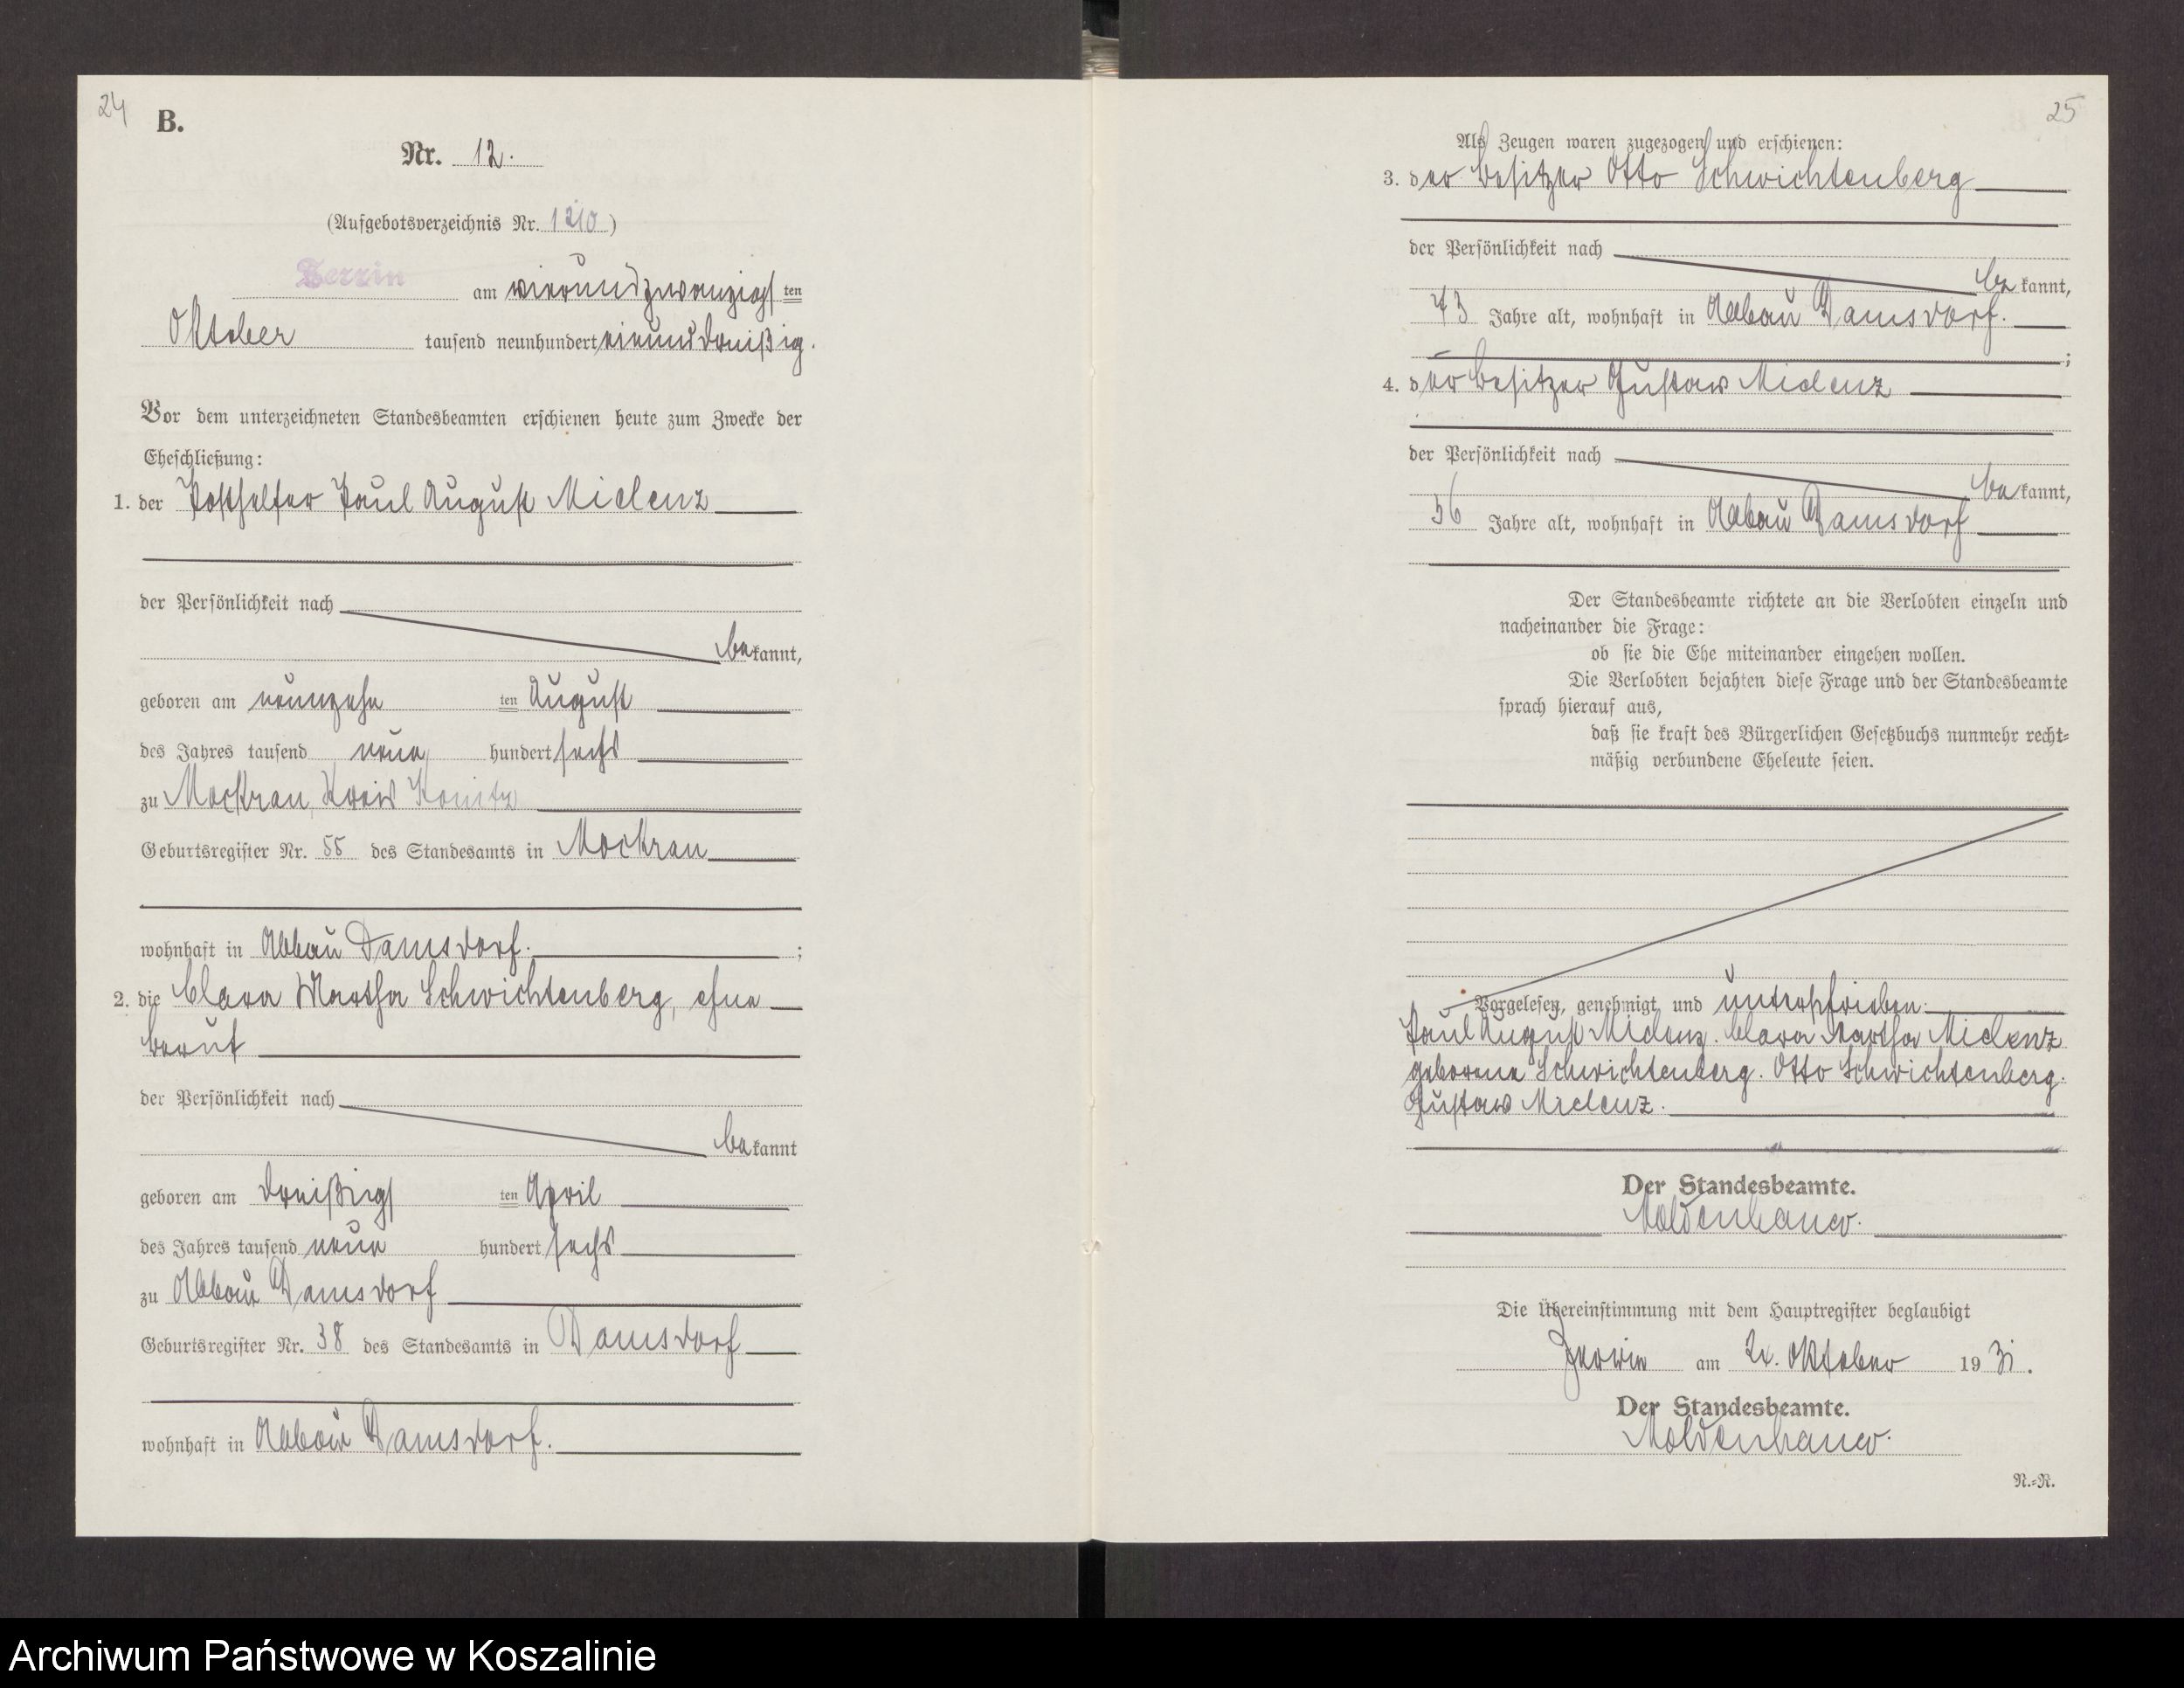 24
B.
Nr. 12.
(Aufgebotsverzeichnis Nr. 1210)
Zerrin am vierundzwanzigsten
Oktober tausend neunhundert einunddreißig.
Vor dem unterzeichneten Standesbeamten erschienen heute zum Zwecke der
Eheschließung:
1. der Posthelfer Paul August Mielenz
der Persönlichkeit nach
bekannt,
geboren am neunzehn ten August
des Jahres tausend neun hundert sechs
zu Mockrau, Kreis Konitz
Geburtsregister Nr. 55 des Standesamts in Mockrau
wohnhaft in Abbau Damsdorf. ;
2. die Clara Martha Schwichtenberg, ohne
Beruf
der Persönlichkeit nach
bekannt
geboren am dreißigs ten April
des Jahres tausend neun hundert sechs
zu Abbau Damsdorf
Geburtsregister Nr. 38 des Standesamts in Damsdorf
wohnhaft in Abbau Damsdorf.
25
Als Zeugen waren zugezogen und erschienen:
3. der Besitzer Otto Schwichtenberg
der Persönlichkeit nach
bekannt,
73 Jahre alt, wohnhaft in Abbau Damsdorf.
;
4. der Besitzer Gustav Mielenz
der Persönlichkeit nach
bekannt,
56 Jahre alt, wohnhaft in Abbau Damsdorf
Der Standesbeamte richtete an die Verlobten einzeln und
nacheinander die Frage:
ob sie die Ehe miteinander eingehen wollen.
Die Verlobten bejahten diese Frage und der Standesbeamte
sprach hierauf aus,
daß sie kraft des Bürgerlichen Gesetzbuchs nunmehr recht-
mäßig verbundene Eheleute seien.
Vorgelesen, genehmigt und unterschrieben.
Paul August Mielenz. Clara Martha Mielenz
geborene Schwichtenberg. Otto Schwichtenberg.
Gustav Mielenz.
Der Standesbeamte.
Moldenhauer.
Die Übereinstimmung mit dem Hauptregister beglaubigt
Zerrin am Oktober 1931.
Der Standesbeamte.
Moldenhauer.
R.-R.
Archiwum Państwowe w Koszalinie